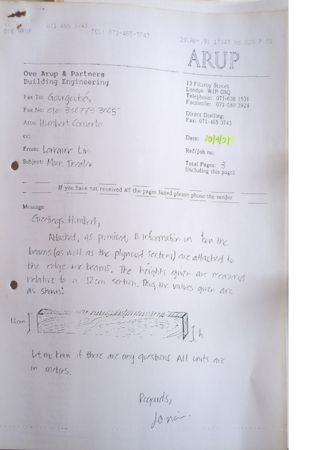 OVE ARUP 071 465 3743
TEL: 071-465-3743
ARUP
Ove Arup & Partners
Building Engineering
13 Fitzroy Street
London W1P 6BQ
Telephone: 071-636 1531
Facsimile: 071-580 3924
Direct Dialling:
Fax: 071-465 3743
Fax To:
Fax No:
Attn: Humbert
cc:
Date:
From: Lorraine Lin
Ref/Job no.
Subject: Main
Total Pages: 3
(including this page)
If you have not received all the pages listed please phone the sender
Message
Greetings Humbert,
Attached, as promised, is information on how the
beams (as well as the plywood sections) are attached to
the edge beams. The heights given are measured
relative to a 12cm section. Thus the values given are
as shown:
12cm
h
Let me know if there are any questions. All units are
in meters.
Regards,